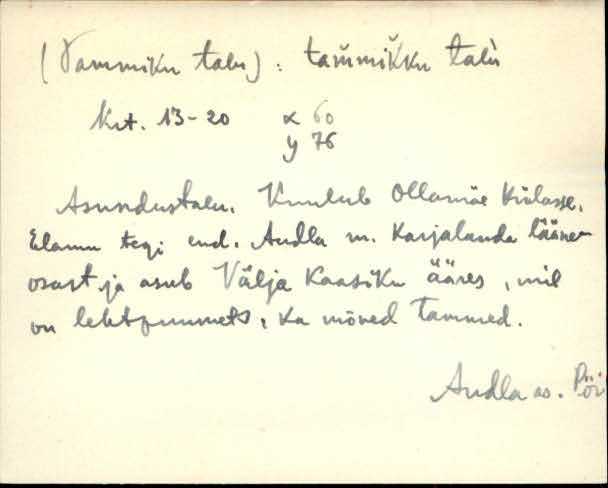 (Tammiku talu): tam̆mik̆ku talù
Krt. 13-20 x 60
y 76
Asundustalu. Kuulub Ollamäe külasse.
Elamu tegi end. Audla m. karjalauda lääne-
osast ja asub Välja Kaasiku ääres, mil
on lehtpuumets, ka mõned tammed.
Audla as. Pöi